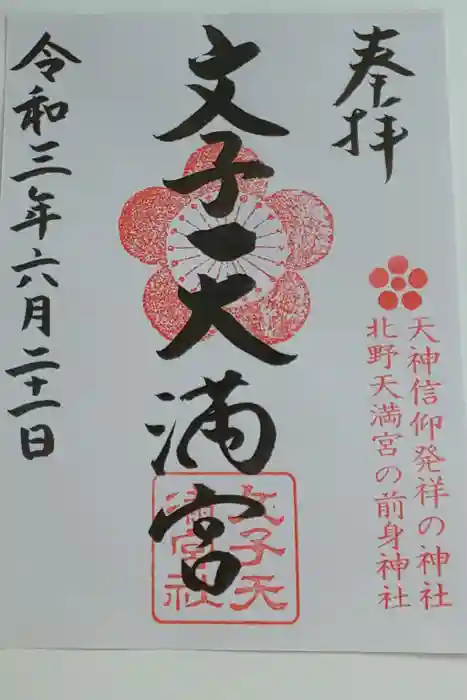 奉拝
天神信仰発祥の神社
北野天満宮の前身神社
文子天満宮
文子天
満宮社
令和三年六月二十一日